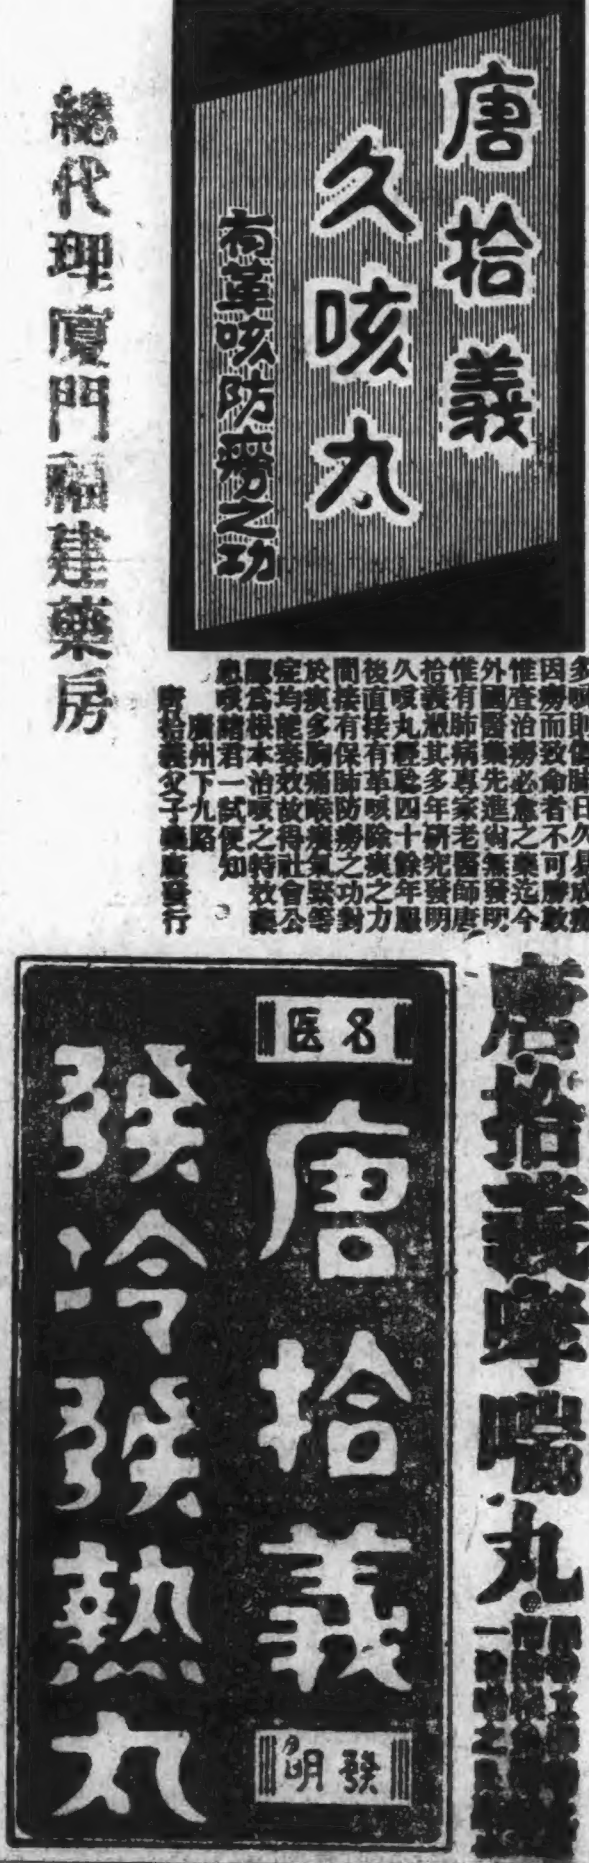 唐拾義
久咳丸
有革咳防癆之功
多咳則傷肺日久易成癆
因癆而致命者不可勝數
惟查治癆必愈之藥迄今
外國醫藥先進尚無發明
惟有肺病專家老醫師唐
拾義憑其多年研究發明
久咳丸經驗四十餘年服
後直接有革咳除痰之力
間接有保肺防癆之功對
於痰多胸痛喉癢氣緊等
症均能奏效故得社會公
認為根本治咳之特效藥
患咳諸君一試便知
廣州下九路
唐拾義父子藥廠發行
總代理廈門福建藥房
唐拾義哮喘丸
名医
唐拾義
發明
發冷發熱丸